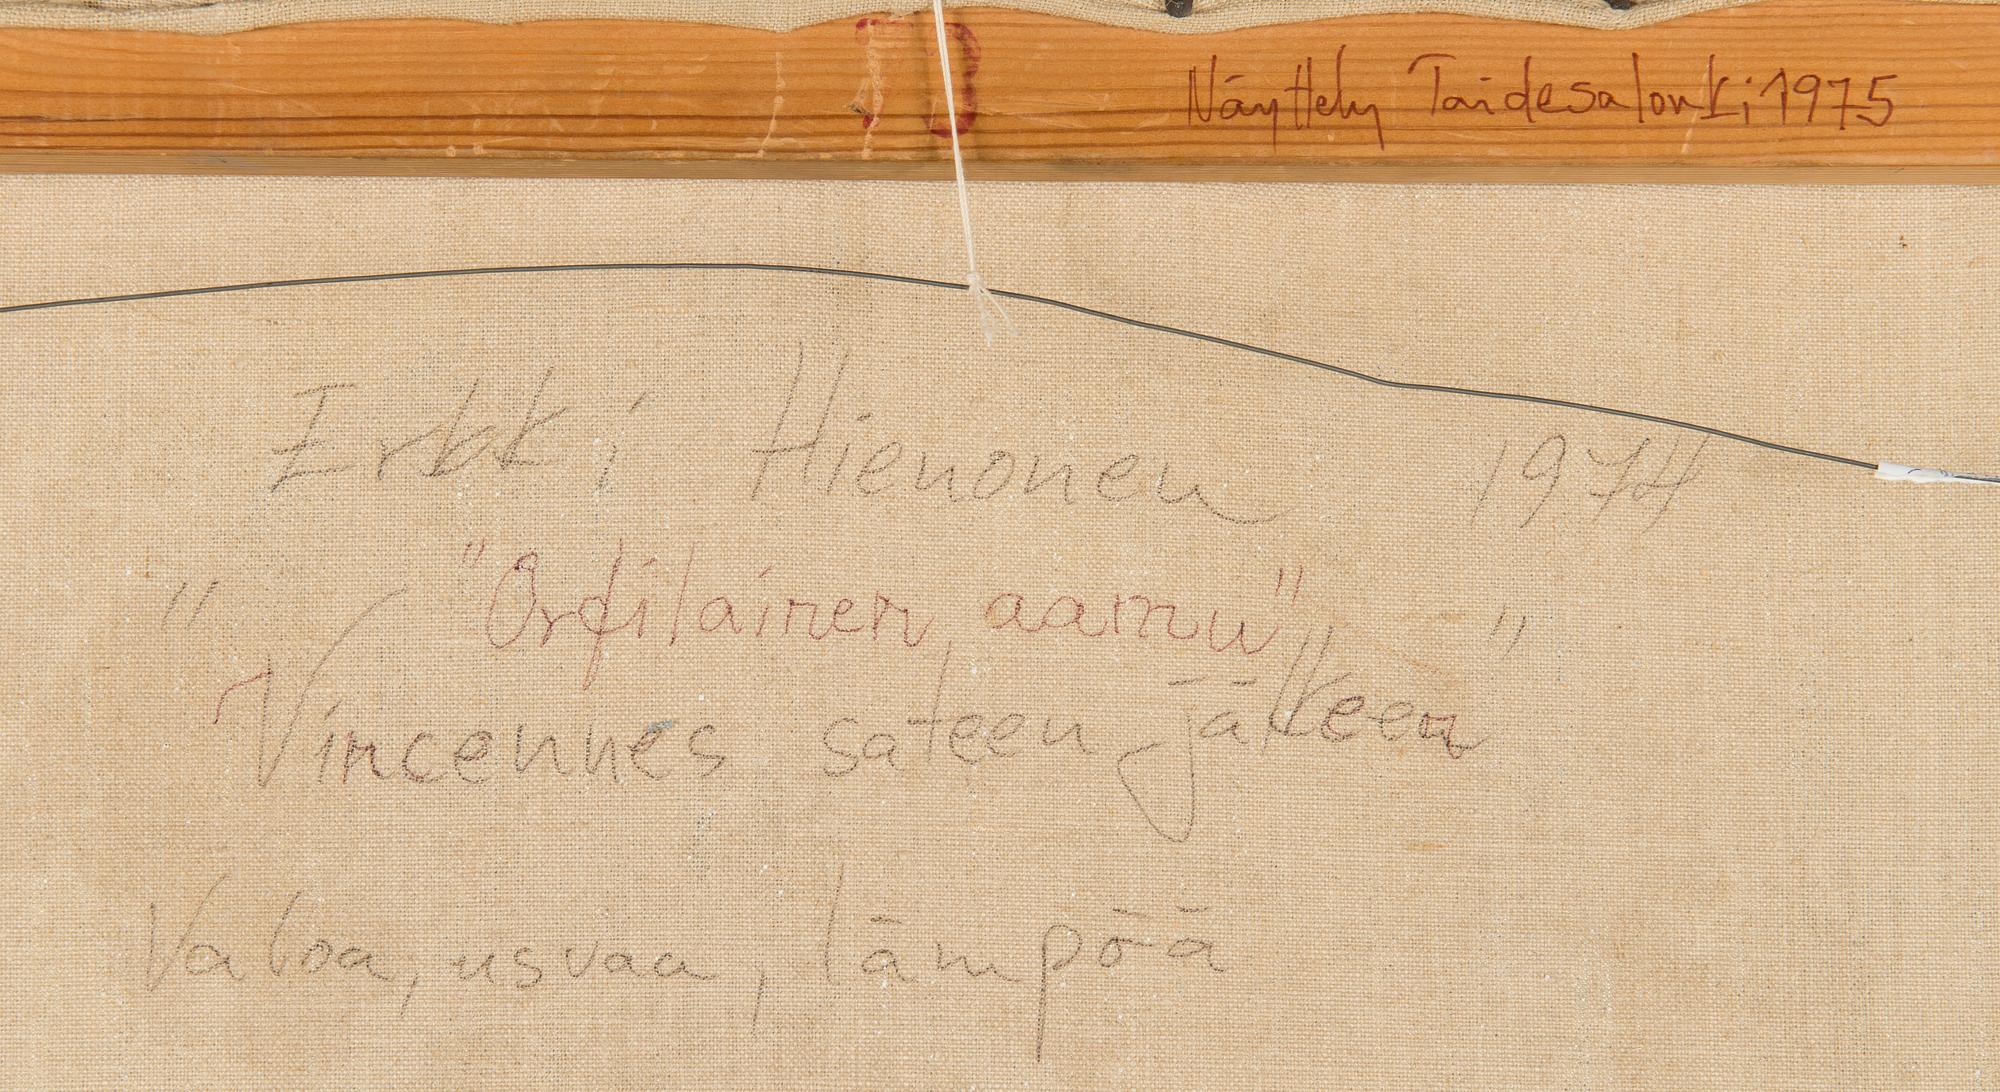 Näyttely Taidesalonki 1975
Erkki Hienonen 1974
"Orfilainen aamu"
"Vincennes sateen jälkeen"
Valoa, usvaa, lämpöä